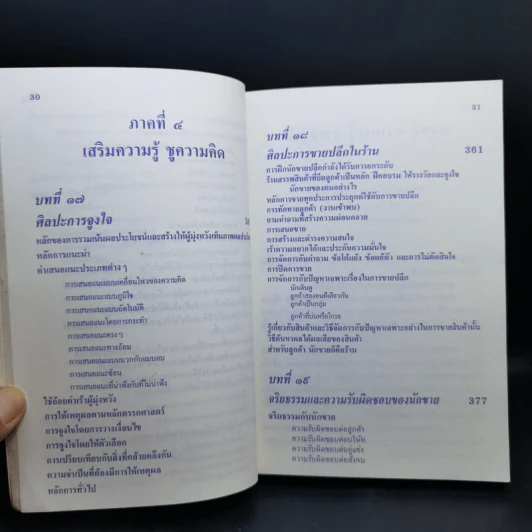 30
ภาคที่ ๔
เสริมความรู้ ชูความคิด
บทที่ ๑๗
ศิลปะการจูงใจ
หลักของการรวมเน้นผลประโยชน์และสร้างให้ผู้มุ่งหวังเห็นภาพผลประโยชน์
หลักการแนะนำ
คำเสนอแนะประเภทต่าง ๆ
การเสนอแนะแบบเคลื่อนไหวของความคิด
การเสนอแนะแบบภูมิใจ
การเสนอแนะแบบอัตโนมัติ
การเสนอแนะโดยการกระทำ
การเสนอแนะตรง ๆ
การเสนอแนะทางอ้อม
การเสนอแนะแบบบวกกับแบบลบ
การเสนอแนะซ้อน
การเสนอแนะที่น่าพึงกับที่ไม่น่าพึง
ใช้ถ้อยคำเร้าผู้มุ่งหวัง
การให้เหตุผลตามหลักตรรกศาสตร์
การจูงใจโดยการวางเงื่อนไข
การจูงใจโดยให้ตัวเลือก
การเปรียบเทียบกับสิ่งที่คล้ายคลึงกัน
ความจำเป็นที่ต้องมีการให้เหตุผล
หลักการทั่วไป
31
บทที่ ๑๘
ศิลปะการขายปลีกในร้าน 361
การฝึกนักขายปลีกกำลังได้รับการยกระดับ
ร้านสรรพสินค้าที่ยึดลูกค้าเป็นหลัก ฝึกอบรม ให้รางวัลและจูงใจ
นักขายของตนอย่างไร
หลักการขายทุกประการประยุกต์ใช้กับการขายปลีก
การทักทายลูกค้า (งานเข้าพบ)
ถามคำถามที่สร้างความผ่อนคลาย
การเสนอขาย
การสร้างและดำรงความสนใจ
เร้าความอยากได้และประกันความมั่นใจ
การจัดการกับคำถาม ข้อโต้แย้ง ข้อแก้ตัว และการไม่ตัดสินใจ
การปิดการขาย
การจัดการกับปัญหาเฉพาะเรื่องในการขายปลีก
นักเดินดู
ลูกค้าสองคนที่เดียวกัน
ลูกค้าเป็นกลุ่ม
ลูกค้าที่บ่นหรือโกรธ
รู้เกี่ยวกับสินค้าและวิธีจัดการกับปัญหาเฉพาะอย่างในการขายสินค้านั้น
วิธีค้นหาผลได้ผลเสียของสินค้า
สำหรับลูกค้า นักขายก็คือร้าน
บทที่ ๑๙
จริยธรรมและความรับผิดชอบของนักขาย 377
จริยธรรมกับนักขาย
ความรับผิดชอบต่อลูกค้า
ความรับผิดชอบต่อบริษัท
ความรับผิดชอบต่อคู่แข่ง
ความรับผิดชอบต่อสังคม